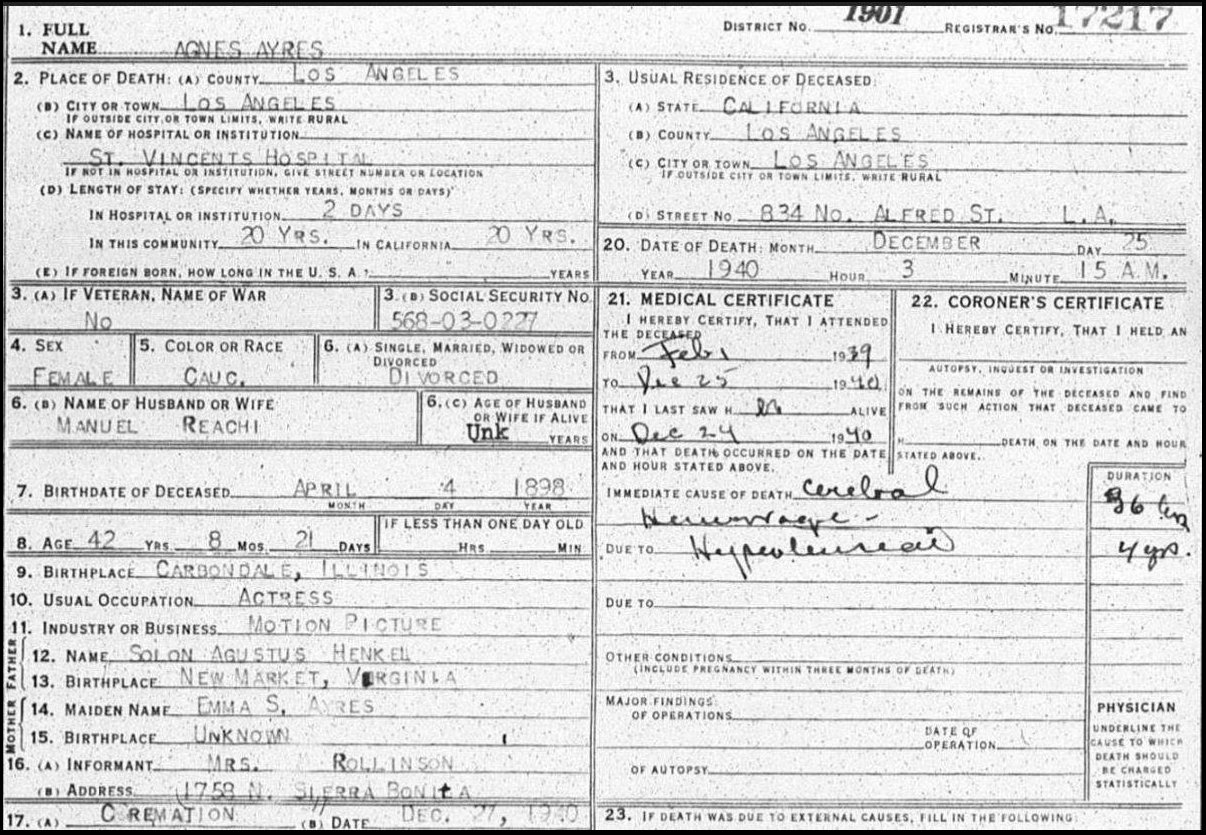 DISTRICT NO. 1901 REGISTRAR'S NO. 17217
1. FULL NAME AGNES AYRES
2. PLACE OF DEATH: (A) COUNTY LOS ANGELES
(B) CITY OR TOWN LOS ANGELES
IF OUTSIDE CITY OR TOWN LIMITS, WRITE RURAL
(C) NAME OF HOSPITAL OR INSTITUTION
ST. VINCENTS HOSPITAL
IF NOT IN HOSPITAL OR INSTITUTION, GIVE STREET NUMBER OR LOCATION
(D) LENGTH OF STAY: (SPECIFY WHETHER YEARS, MONTHS OR DAYS)
IN HOSPITAL OR INSTITUTION 2 DAYS
IN THIS COMMUNITY 20 YRS. IN CALIFORNIA 20 YRS.
(E) IF FOREIGN BORN, HOW LONG IN THE U. S. A? YEARS
3. USUAL RESIDENCE OF DECEASED:
(A) STATE CALIFORNIA
(B) COUNTY LOS ANGELES
(C) CITY OR TOWN LOS ANGELES
IF OUTSIDE CITY OR TOWN LIMITS, WRITE RURAL
(D) STREET NO 834 NO. ALFRED ST. L.A.
20. DATE OF DEATH: MONTH DECEMBER DAY 25
YEAR 1940 HOUR 3 MINUTE 15 A.M.
3. (A) IF VETERAN, NAME OF WAR
NO
3. (B) SOCIAL SECURITY NO.
568-03-0227
4. SEX
FEMALE
5. COLOR OR RACE
CAUC.
6. (A) SINGLE, MARRIED, WIDOWED OR
DIVORCED
DIVORCED
6. (B) NAME OF HUSBAND OR WIFE
MANUEL REACHI
6. (C) AGE OF HUSBAND
OR WIFE IF ALIVE
Unk YEARS
7. BIRTHDATE OF DECEASED APRIL 4 1898
MONTH DAY YEAR
8. AGE 42 YRS. 8 MOS. 21 DAYS
IF LESS THAN ONE DAY OLD
HRS. MIN
9. BIRTHPLACE CARBONDALE, ILLINOIS
10. USUAL OCCUPATION ACTRESS
11. INDUSTRY OR BUSINESS MOTION PICTURE
FATHER
12. NAME SOLON AGUSTUS HENKEL
13. BIRTHPLACE NEW MARKET, VIRGINIA
MOTHER
14. MAIDEN NAME EMMA S. AYRES
15. BIRTHPLACE UNKNOWN
16. (A) INFORMANT MRS. ROLLINSON
(B) ADDRESS 1758 N. SIERRA BONITA
17. (A) CREMATION (B) DATE DEC. 27, 1940
21. MEDICAL CERTIFICATE
I HEREBY CERTIFY, THAT I ATTENDED
THE DECEASED
FROM Feb 1 1939
TO Dec 25 1940
THAT I LAST SAW H er ALIVE
ON Dec 24 1940
AND THAT DEATH OCCURRED ON THE DATE
AND HOUR STATED ABOVE.
22. CORONER'S CERTIFICATE
I HEREBY CERTIFY, THAT I HELD AN
AUTOPSY, INQUEST OR INVESTIGATION
ON THE REMAINS OF THE DECEASED AND FIND
FROM SUCH ACTION THAT DECEASED CAME TO
H DEATH ON THE DATE AND HOUR
STATED ABOVE.
DURATION
IMMEDIATE CAUSE OF DEATH Cerebral 36 hrs
Hemorrage -
DUE TO Hypertension 4 yrs.
DUE TO
OTHER CONDITIONS
(INCLUDE PREGNANCY WITHIN THREE MONTHS OF DEATH)
MAJOR FINDINGS:
OF OPERATIONS
DATE OF
OPERATION
OF AUTOPSY
PHYSICIAN
UNDERLINE THE
CAUSE TO WHICH
DEATH SHOULD
BE CHARGED
STATISTICALLY
23. IF DEATH WAS DUE TO EXTERNAL CAUSES, FILL IN THE FOLLOWING: